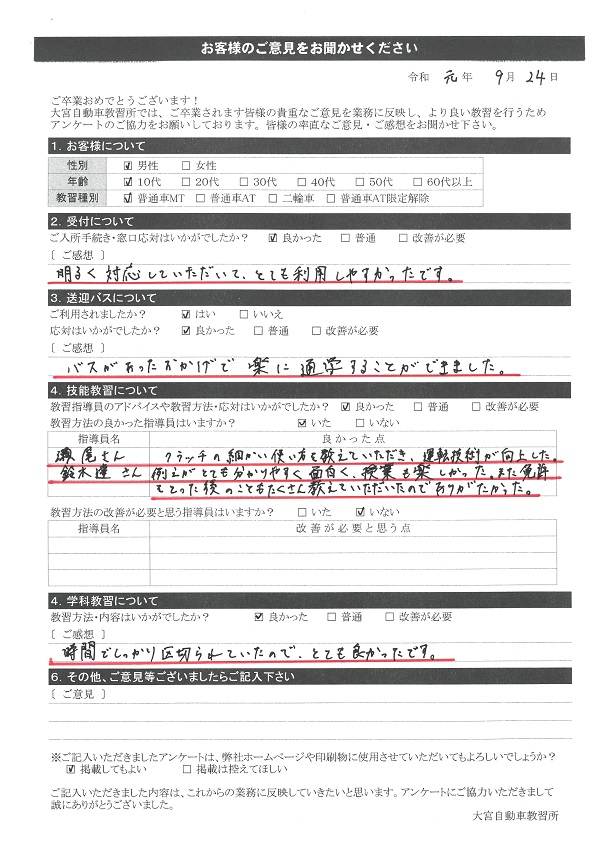 お客様のご意見をお聞かせください
令和 元年 9月 24日
ご卒業おめでとうございます！
大宮自動車教習所では、ご卒業されます皆様の貴重なご意見を業務に反映し、より良い教習を行うため
アンケートのご協力をお願いしております。皆様の率直なご意見・ご感想をお聞かせ下さい。
1. お客様について
性別 ☑ 男性 □ 女性
年齢 ☑ 10代 □ 20代 □ 30代 □ 40代 □ 50代 □ 60代以上
教習種別 ☑ 普通車MT □ 普通車AT □ 二輪車 □ 普通車AT限定解除
2. 受付について
ご入所手続き・窓口応対はいかがでしたか？ ☑ 良かった □ 普通 □ 改善が必要
〔 ご感想 〕
明るく対応していただいて、とても利用しやすかったです。
3. 送迎バスについて
ご利用されましたか？ ☑ はい □ いいえ
応対はいかがでしたか？ ☑ 良かった □ 普通 □ 改善が必要
〔 ご感想 〕
バスがあったおかげで楽に通学することができました。
4. 技能教習について
教習指導員のアドバイスや教習方法・応対はいかがでしたか？ ☑ 良かった □ 普通 □ 改善が必要
教習方法の良かった指導員はいますか？ ☑ いた □ いない
指導員名 良かった点
瀬尾さん クラッチの細かい使い方を教えていただき、運転技術が向上した。
鈴木達さん 例えがとても分かりやすく面白く、授業も楽しかった。また免許
をとった後のこともたくさん教えていただいたのでありがたかった。
教習方法の改善が必要と思う指導員はいますか？ □ いた ☑ いない
指導員名 改善が必要と思う点
4. 学科教習について
教習方法・内容はいかがでしたか？ ☑ 良かった □ 普通 □ 改善が必要
〔 ご感想 〕
時間でしっかり区切られていたので、とても良かったです。
6. その他、ご意見等ございましたらご記入下さい
〔 ご意見 〕
※ご記入いただきましたアンケートは、弊社ホームページや印刷物に使用させていただいてもよろしいでしょうか？
☑ 掲載してもよい □ 掲載は控えてほしい
ご記入いただきました内容は、これからの業務に反映していきたいと思います。アンケートにご協力いただきまして
誠にありがとうございました。
大宮自動車教習所